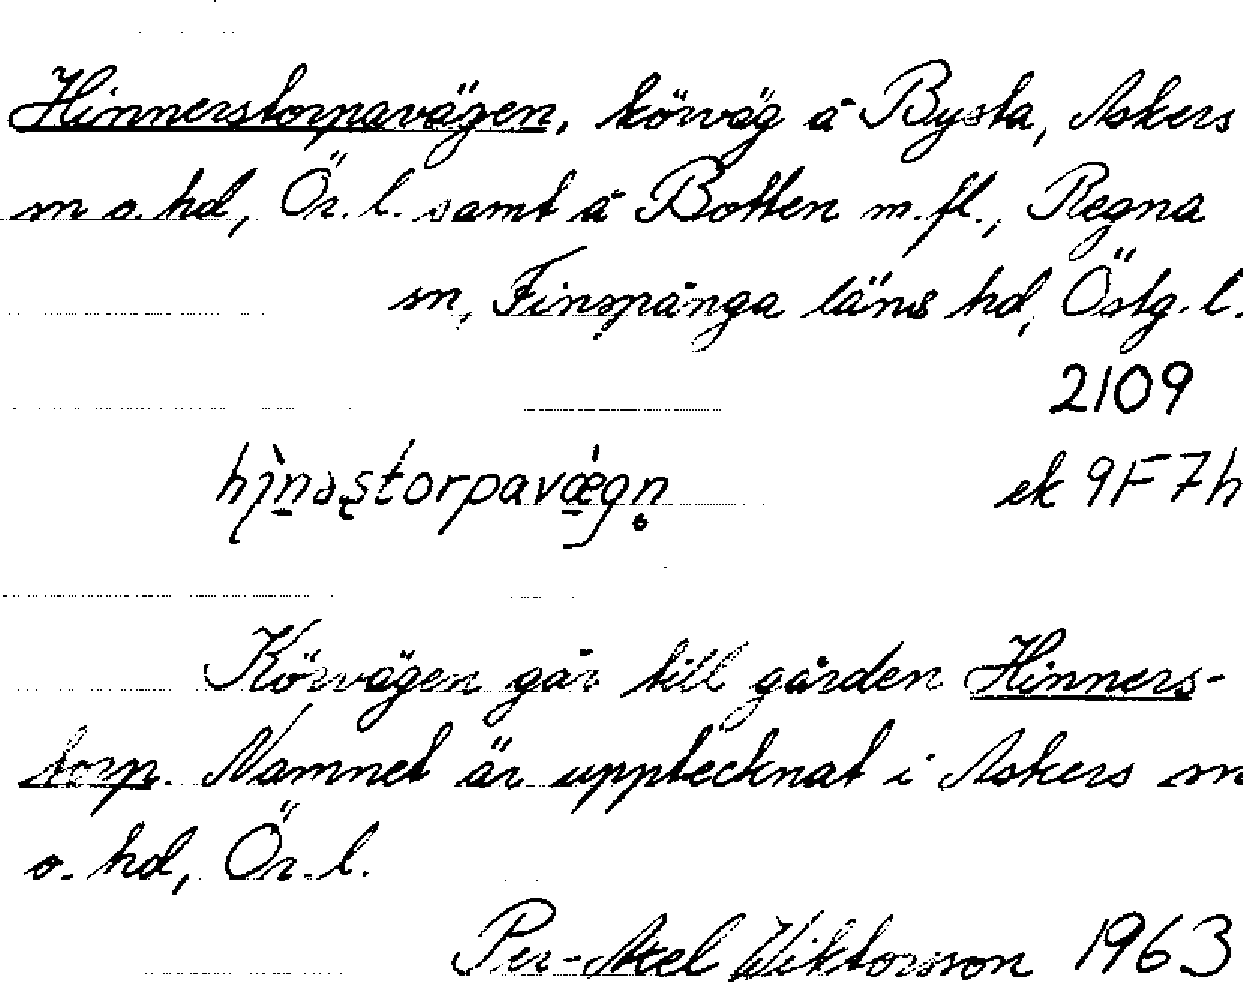 Hinnerstorpavägen, körväg å Bysta, Askers
sn o. hd, Ör. l. samt å Botten m. fl., Regna
sn, Finspånga läns hd, Östg. l.
2109
ek 9F7h
Körvägen går till gården Hinners-
torp. Namnet är upptecknat i Askers sn
o. hd, Ör. l.
Per-Axel Wiktorsson 1963